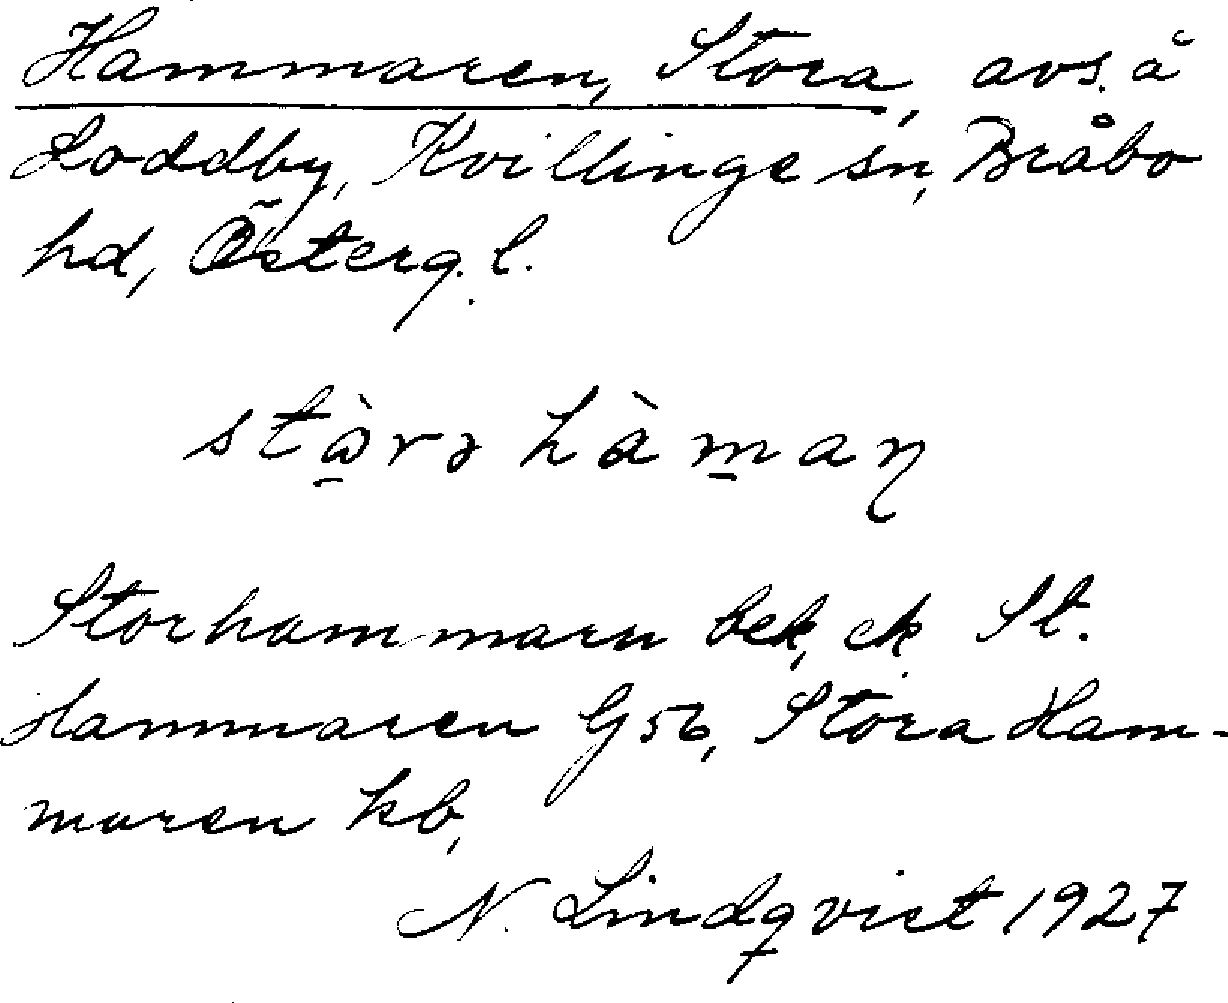 Hammaren, Stora, avs. å
Loddby, Kvillinge sn, Bråbo
hd, Österg. l.
stɷ̠̀rə hàm̠aɳ
Storhammarn bek, ek St.
Hammaren G56, Stora Ham-
maren kb,
N. Lindqvist 1927